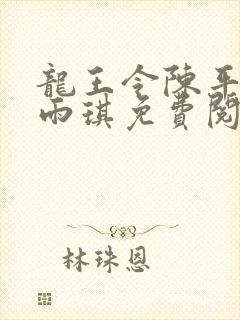 龍王令陳平
雨琪免費閱
林珠恩